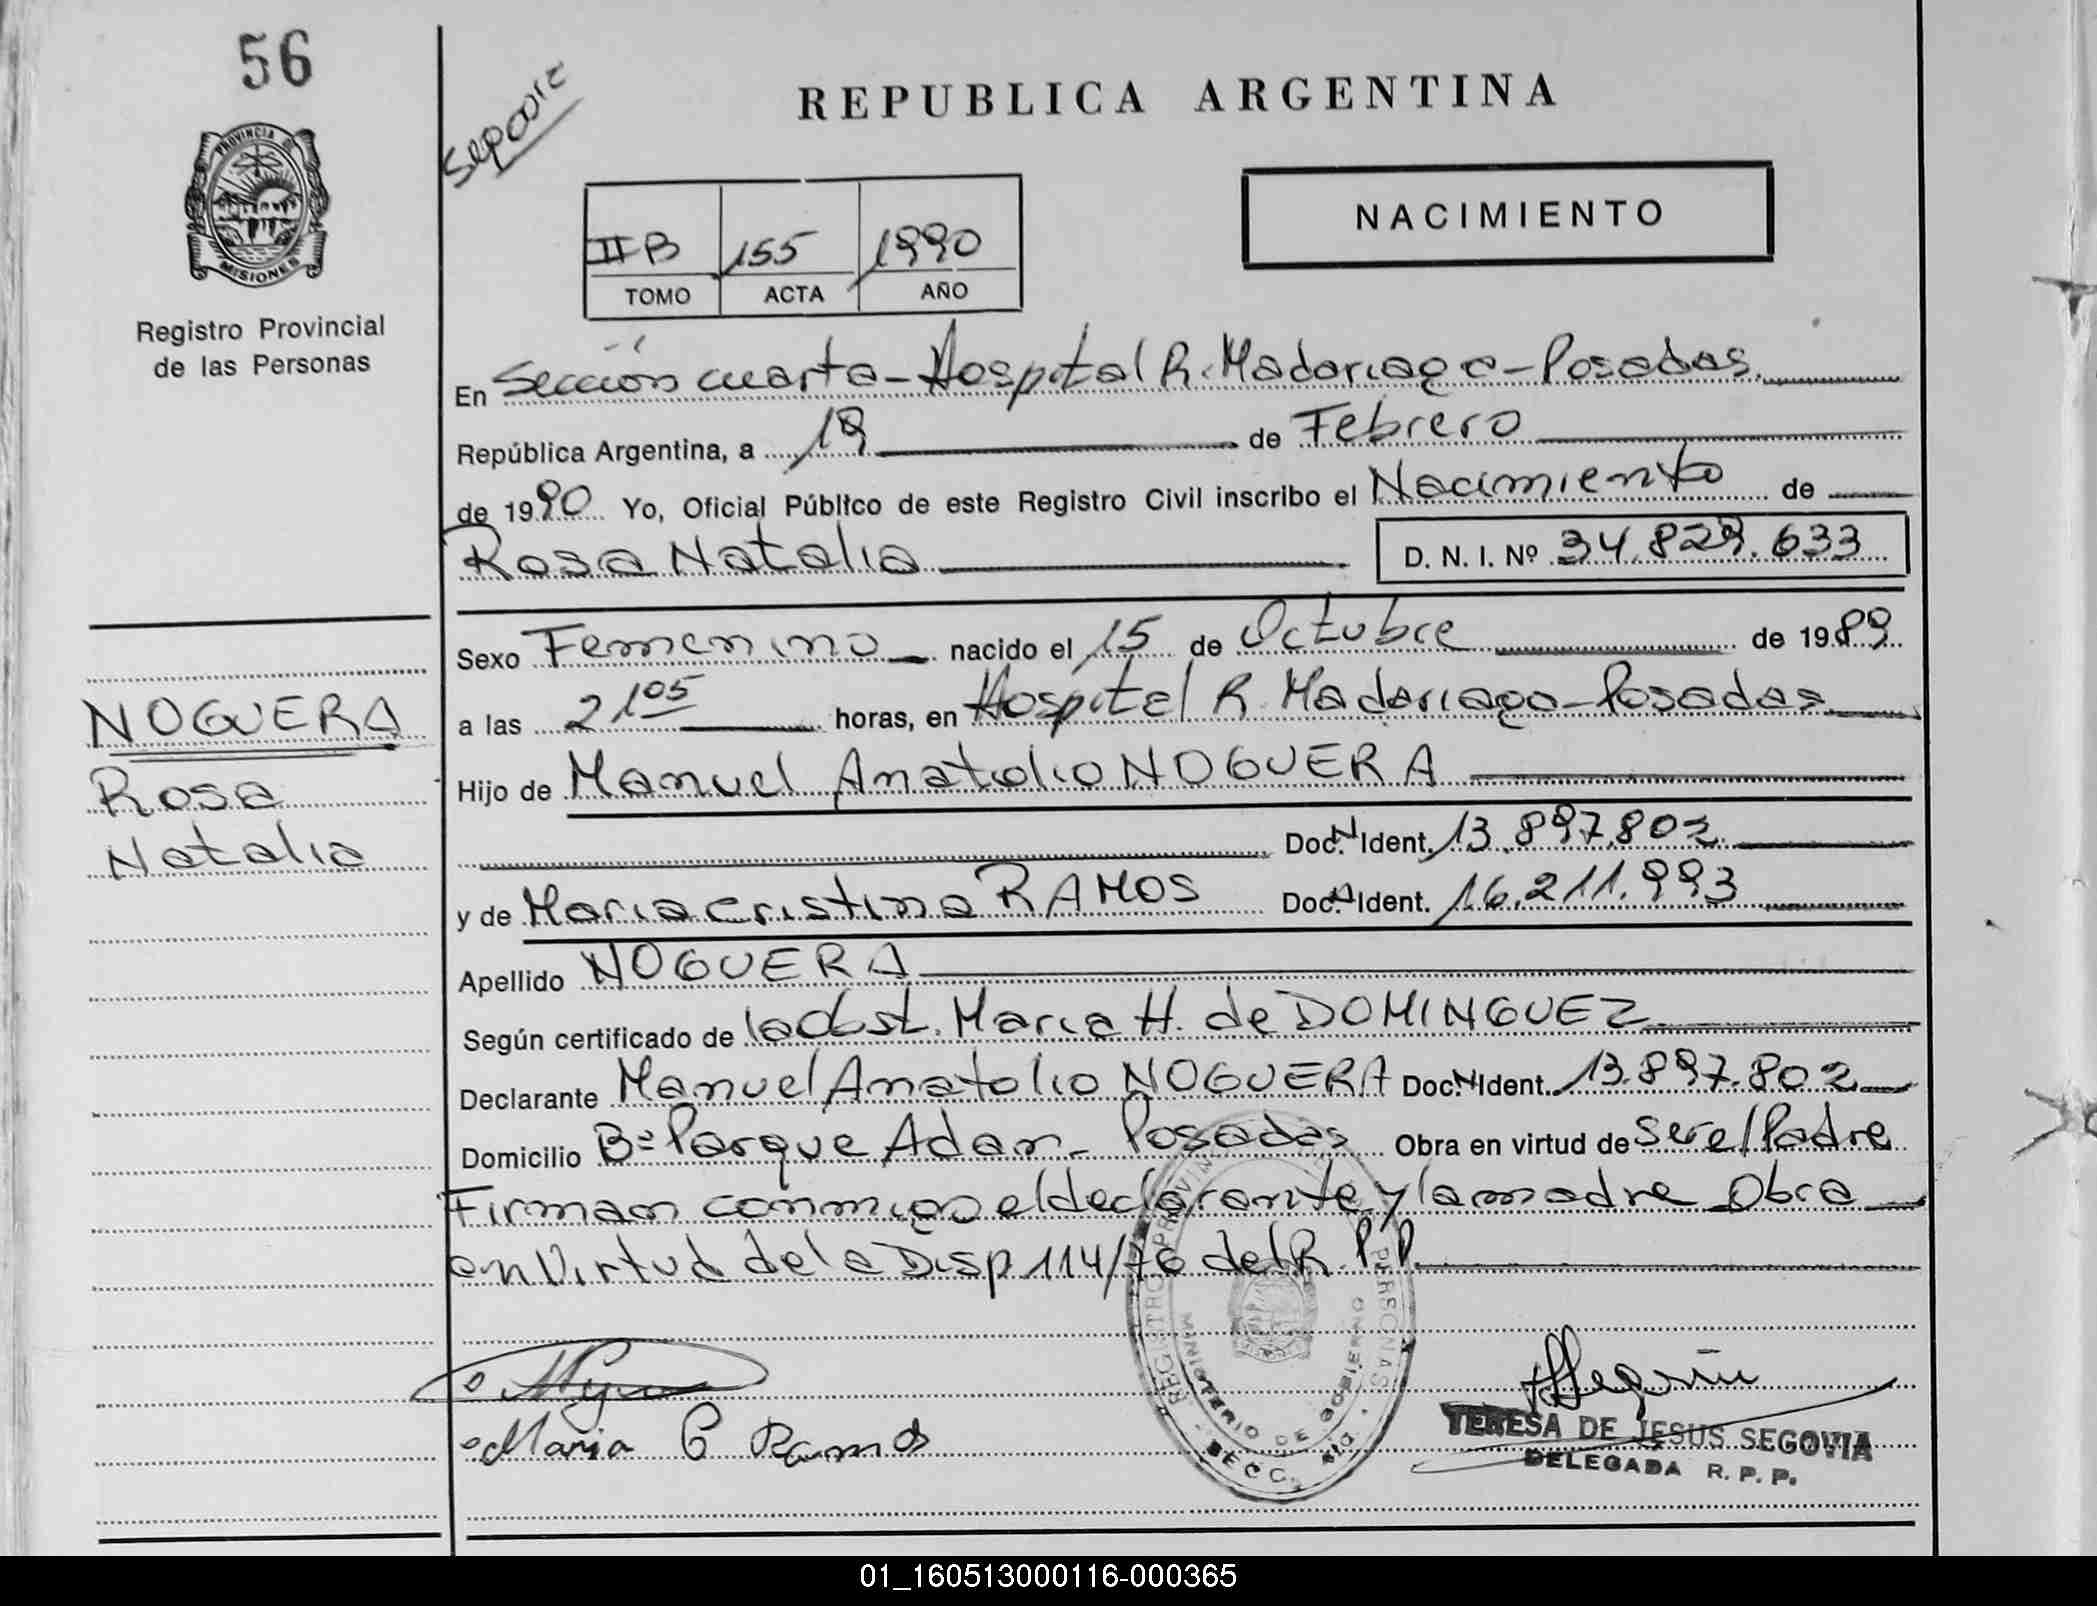 56
Separar
REPUBLICA ARGENTINA
PROVINCIA DE MISIONES
Registro Provincial
de las Personas
NACIMIENTO
II B 155 1990
TOMO ACTA AÑO
En Sección cuarta - Hospital R. Madariaga - Posadas.
República Argentina, a 19 de Febrero
de 1990 Yo, Oficial Público de este Registro Civil inscribo el Nacimiento de
Rosa Natalia D. N. I. Nº 34.829.633
Sexo Femenino nacido el 15 de Octubre de 1989
NOGUERA
Rosa
Natalia
a las 21 05 horas, en Hospital R. Madariaga - Posadas
Hijo de Manuel Anatolio NOGUERA
Doc. N Ident. 13.897.802
y de Maria Cristina RAMOS Doc. N Ident. 16.211.993
Apellido NOGUERA
Según certificado de la Obst. Maria H. de DOMINGUEZ
Declarante Manuel Anatolio NOGUERA Doc. N Ident. 13.897.802
Domicilio Bº Parque Adam - Posadas Obra en virtud de Ser el Padre
Firman conmigo el declarante y la madre Obra
en Virtud de la Disp 114/76 del R. P. P.
REGISTRO PROVINCIAL PERSONAS
MINISTERIO DE GOBIERNO
SECC. 4ta
Maria C Ramos
TERESA DE JESUS SEGOVIA
DELEGADA R. P. P.
01_160513000116-000365